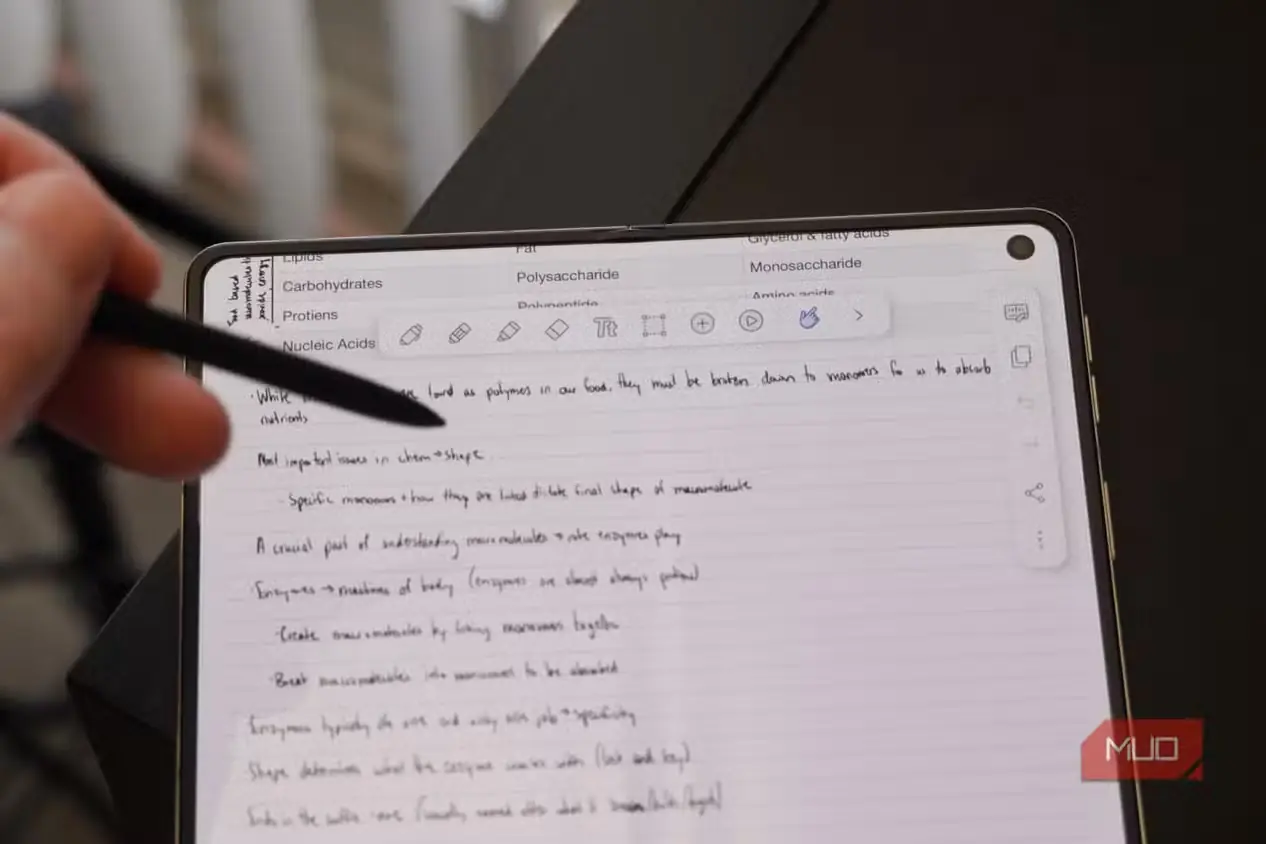 Lipids Fat Glycerol & fatty acids
Carbohydrates Polysaccharide Monosaccharide
Protiens Polypeptide Amino acids
Nucleic Acids
Tt
· While found as polymers in our food, they must be broken down to monomers for us to absorb
nutrients
Most important issues in chem → shape
- Specific monomers + how they are linked dictate final shape of macromolecule
A crucial part of understanding macromolecules → role enzymes play
· Enzymes → machines of body (enzymes are almost always proteins)
· Create macromolecules by linking monomers together
· Break macromolecules into monomers to be absorbed
Enzymes typically do one and only one job → specificity
Shape determines what the enzyme works with (lock and key)
Ends in the suffix -ase (usually named after what it
MUO